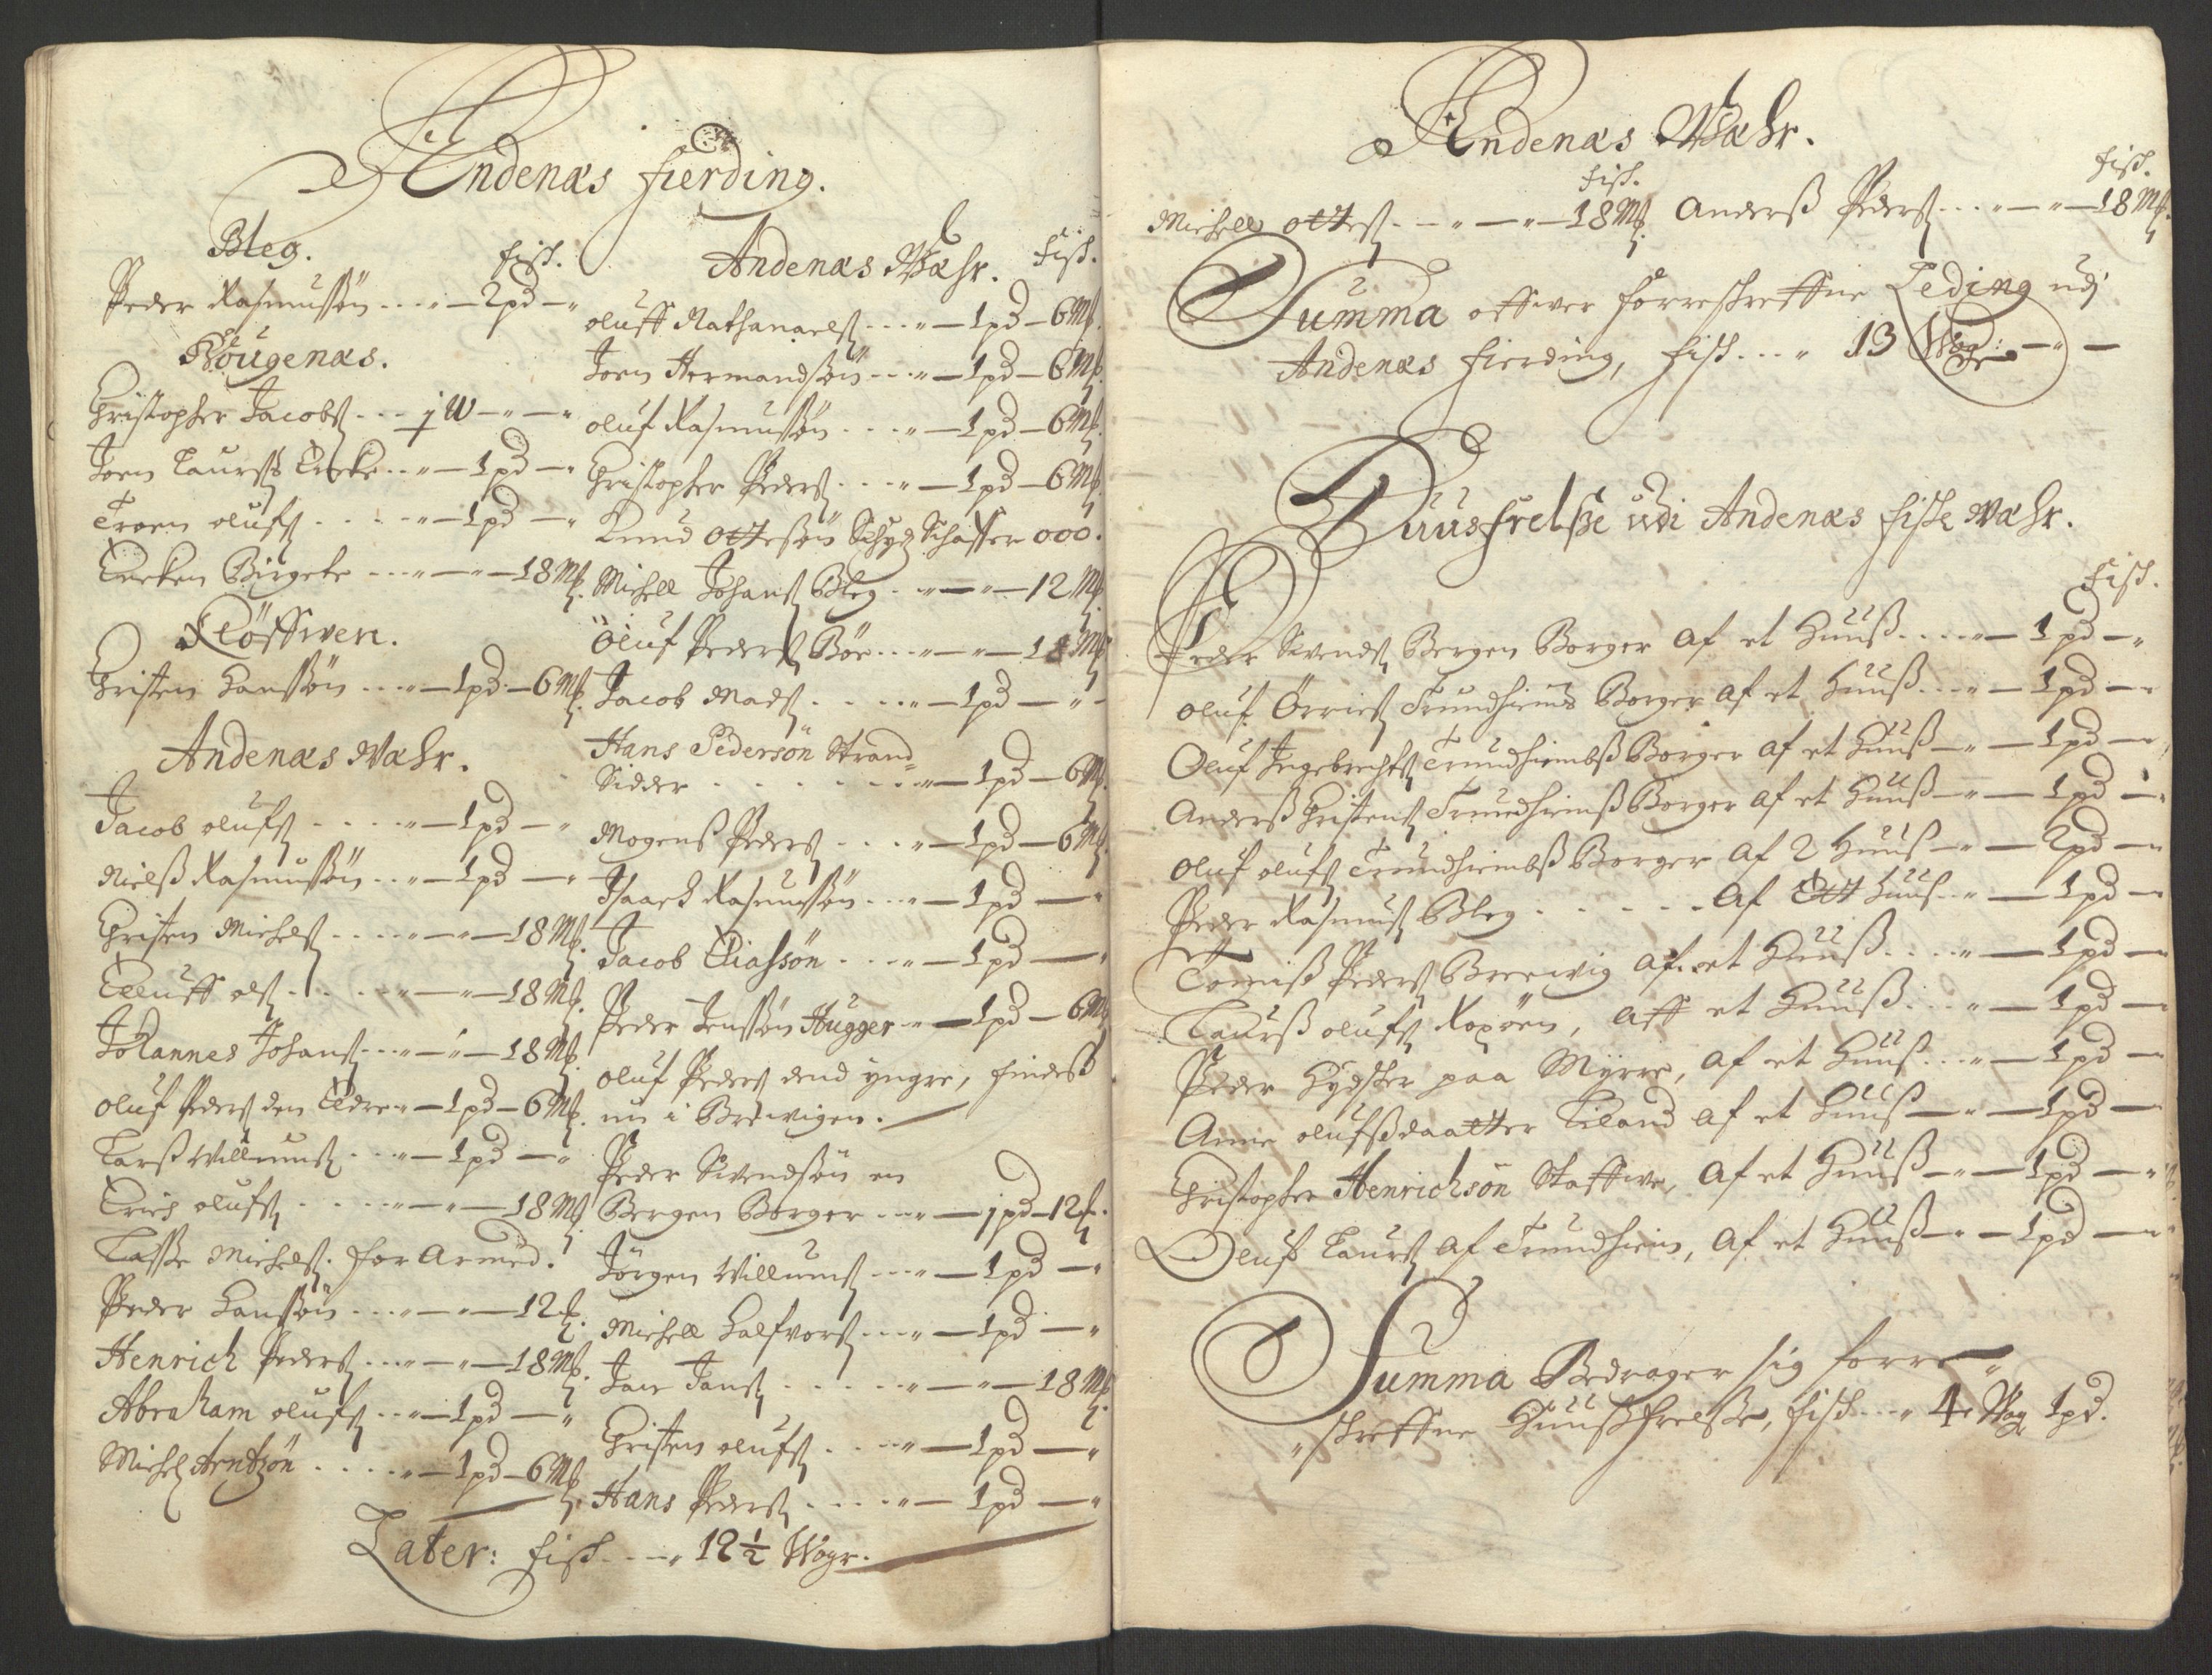 Andenæs fierding.
Bleg.
fisk.
Peder Rasmussøn - - - " — 2 pd — "
Hougenæs.
Christopher Jacobs: - - - j W — " — "
Joen Laurs: - - " — 1 pd — "
Troen olufs: - - - - " — 1 pd — "
Birgete - - - " — " — 18 Mk.
Kløffwen.
Christen Hanssøn - - - " — 1 pd — 6 Mk.
Andenæs Wæhr.
Jacob olufs: - - - - " — 1 pd — "
Nielß Rasmussøn - - " — 1 pd — "
Christen Michels: - - - - " — " — 18 Mk.
Elluff ols: - - - - " — " — 18 Mk.
Johannes Johans: - - - " — " — 18 Mk.
oluf Peders: den Eldre " — 1 pd — 6 Mk.
Larß Willums: - - - " — 1 pd — "
Erich olufs: - - - - " — " — 18 Mk.
Lasse Michels: for Armod.
Peder Hanssøn - - - " — " — 12 Mk.
Henrich Peders: - - - " — " — 18 Mk.
Abraham olufs: - - " — 1 pd — "
Michel Arntzøn - - - - " — 1 pd — 6 Mk.
Andenæs Wæhr.
fisk.
oluff Nathanaels: - - - " — 1 pd — 6 Mk.
Joen Hermandsøn - - - " — 1 pd — 6 Mk.
oluf Rasmussøn - - - " — 1 pd — 6 Mk.
Christopher Peders: - - - " — 1 pd — 6 Mk.
Knud Ottesøn Schydz Schaffer 000.
Michell Johans: Bleg - " — " — 12 Mk.
Oluf Peders: Böe - - - " — " — 18 Mk.
Jacob Mads: - - - - " — 1 pd — " -
Hans Pedersön Strand=
Sidder - - - - - - " — 1 pd — 6 Mk.
Mogenß Peders: - - - - " — 1 pd — 6 Mk.
Isaack Rasmussøn - - - " — 1 pd — "
Jacob Eliassön - - - " — 1 pd — "
Peder Jenssøn Hugger " — 1 pd — 6 Mk.
oluf Peders: dend yngre, findeß
nu i Brewigen.
Peder Swendsøn en
Bergen Borger - - - " — j pd — 12 Mk.
Jörgen Willums: - - - " — 1 pd — "
Michell Halfvors: - - - " — 1 pd — "
Jens: - - - - - " — " — 18 Mk.
Christen olufs: - - - - " — 1 pd — "
Hans Peders: - - - - " — 1 pd — "
Later: fisk - - - " 12 ½ Woger.
Andenæs Wæhr.
fisk.
fisk.
Michell ottes: - - - " — " — 18 Mk.
Anderß Peders: - - - " — " — 18 Mk.
Summa offwer forreschreffne Leding udj
Andenæs fierding, fisk - - - " 13 Woger: — " —
Huusfrelsse udi Andenæs fiske Wæhr.
fisk.
Peder Swends: Bergen Borger af et Huuß - - - " — 1 pd — "
oluf Örries: Trundhiems Borger af et Huuß - - - " — 1 pd — "
Oluf Ingebrechts: Trundhiembß Borger af et Huuß — " — 1 pd — "
Anderß Christens: Trundhiemß Borger af et Huuß — " — 1 pd — "
oluf olufs: Trundhiembß Borger af 2 Huuß — " — 2 pd — "
Peder Rasmus: Bleg - - - - - - af Ett Huuß - - " — 1 pd — "
Tomiß Peders: Breewig af et Huuß - - - - " — 1 pd — "
Laurß olufs: , aff et Huuß - - - " — 1 pd — "
Peder paa Myrre, af et Huuß - - - " — 1 pd — "
Anne olufßdaatter af et Huuß — " — 1 pd — "
Christopher Henrichsøn Staffwe, af et Huuß — " — 1 pd — "
Oluf Laurs: af Trundhiem, af et Huuß — " — 1 pd — "
Summa Bedrager sig forre=
"schreffne Huußfrelsse, fisk - - - " 4 Wog 1 pd.